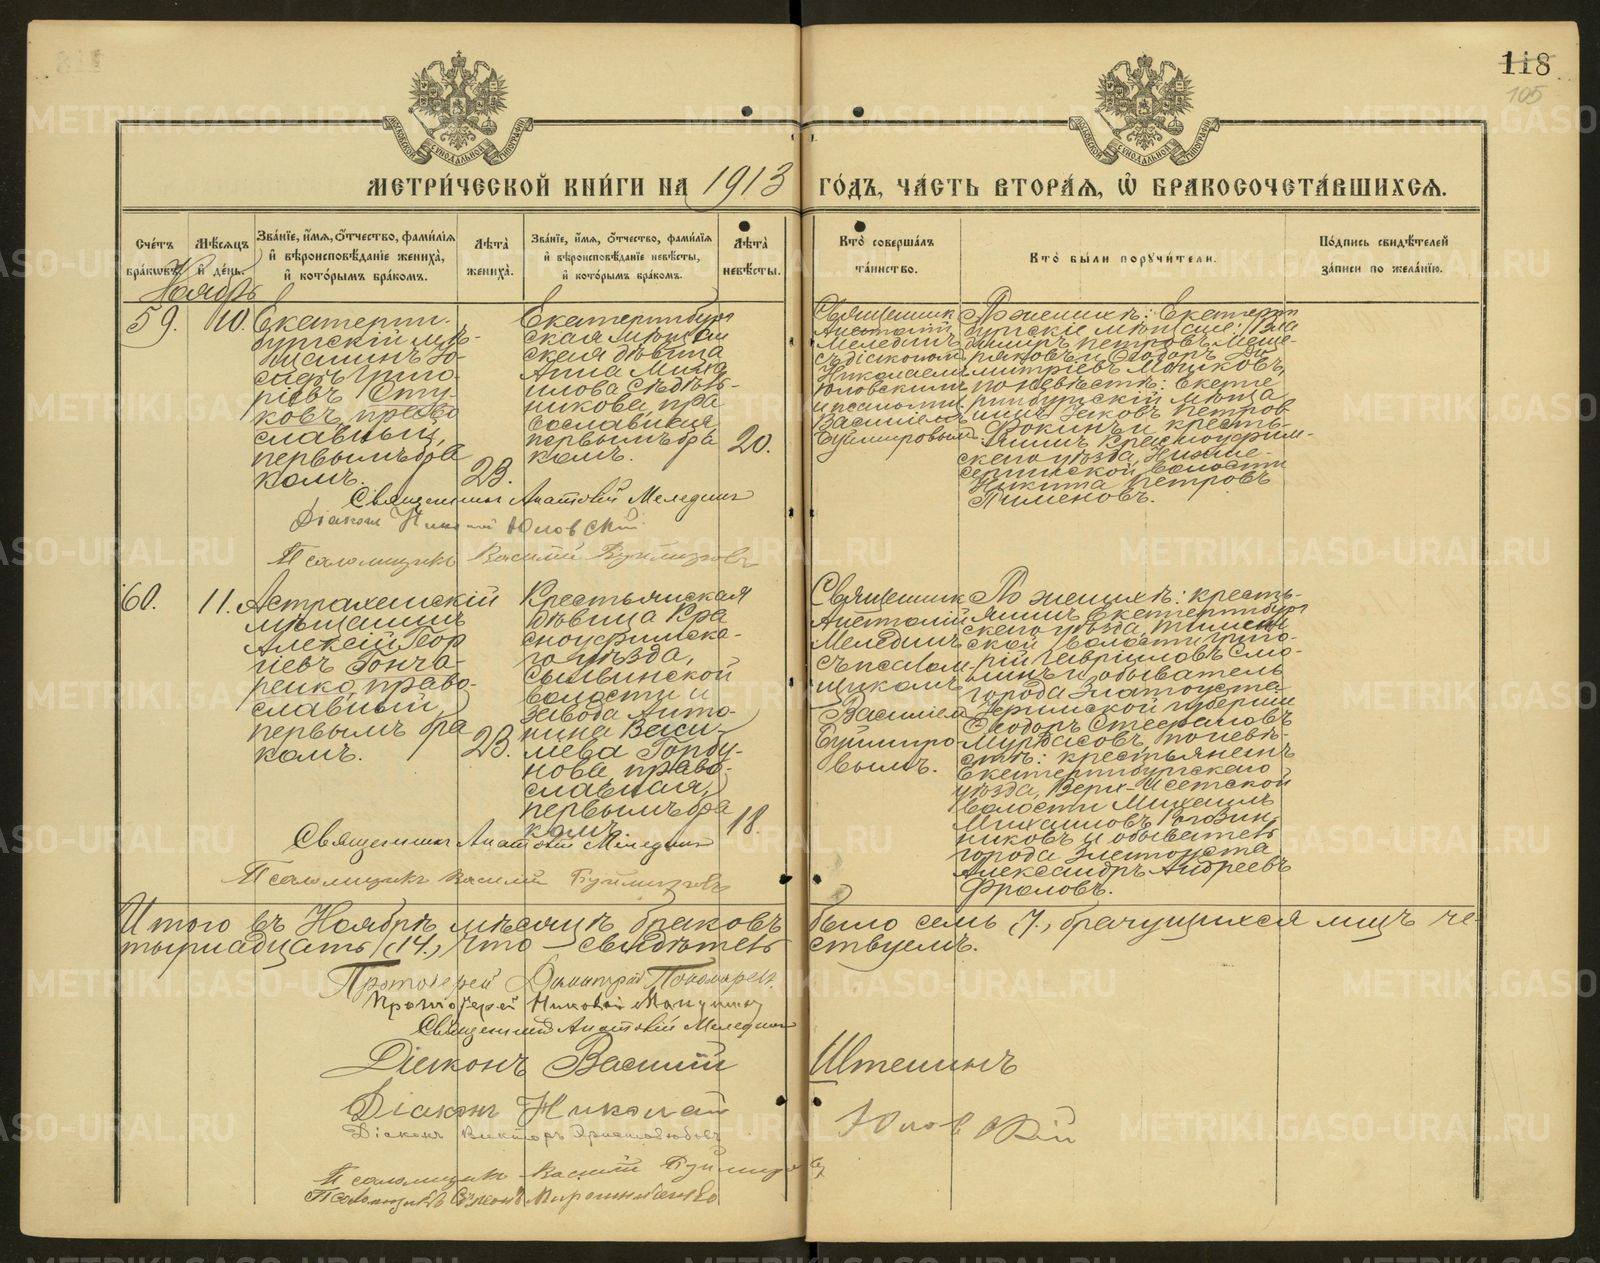 118
105
МЕТРИ́ЧЕСКОЙ КНИ́ГИ НА 1913 ГО́ДЪ, ЧА́СТЬ ВТОРА́Я, Ѽ БРАКОСОЧЕТА́ВШИХСЯ.
Сче́тъ бра́ковъ.
Мѣ́сяцъ и҆ де́нь.
Зва́нїе, и҆́мя, ѻ҆́тчество, фами́лїя и҆ вѣроисповѣ́данїе жениха̀, и҆ кото́рымъ бра́комъ.
Лѣ́та жениха̀.
Зва́нїе, и҆́мя, ѻ҆́тчество, фами́лїя и҆ вѣроисповѣ́данїе невѣ́сты, и҆ кото́рымъ бра́комъ.
Лѣ́та невѣ́сты.
Кто̀ соверша́лъ та́инство.
Кто̀ бы́ли поручи́тели.
По́дпись свидѣ́телей за́писи по жела́нїю.
Ноябрь
59.
10.
Екатерин-
бургскій мѣ-
щанинъ Іо-
сифъ Григо-
рьевъ Сту-
ковъ, право
славный,
первымъ бра
комъ.
23.
Екатеринбург
ская мѣщан
ская дѣвица
Анна Миха
илова
никова, пра
вославная,
первымъ бра
комъ.
20.
Священникъ
Анатолій
Мелединъ
съ діакономъ
Николаемъ
Юловскимъ
и псаломщ
Василіемъ
Буймировымъ
По женихѣ: Екатерин
бургскіе мѣщане: Вла
диміръ Петровъ Меще-
ряковъ и Ѳеодоръ Ди
митріевъ
по невѣстѣ: Екате
ринбургскій мѣща
нинъ Яковъ Петров
Фокинъ и кресть-
янинъ Красноуфим-
скаго уѣзда, Нижне-
сергинской волости
Никита Петровъ
Пименовъ.
Священникъ Анатолій Мелединъ
Діаконъ Николай Юловскій
Псаломщикъ Василій Буймировъ
60.
11.
Астраханскій
мѣщанинъ
Алексѣй Геор
гіевъ Гонча-
ренко, право-
славный,
первымъ бра
комъ.
23.
Крестьянская
дѣвица Кра
сноуфимска-
го уѣзда,
Сылвинской
волости и
завода Анто-
нина Васи-
льева Горбу-
нова, право-
славная,
первымъ бра
комъ.
18.
Священникъ
Анатолій
Мелединъ
съ псалом-
щикомъ
Василіем
Буймиро-
вымъ.
По женихѣ: кресть-
янинъ Екатеринбург
скаго уѣзда,
ской волости Григо-
рій Гавріиловъ Смо-
линъ и обыватель
города Златоуста
Уфимской губерніи
Ѳеодоръ Стефановъ
Мурдасовъ, по невѣ-
стѣ: крестьянинъ
Екатеринбургскаго
уѣзда, Верх-Исетской
волости Михаилъ
Михаиловъ Рогозин
никовъ и обыватель
города Златоуста
Александръ Андреевъ
Фроловъ.
Священникъ Анатолій Мелединъ
Псаломщикъ Василій Буймировъ
Итого въ Ноябрѣ мѣсяцѣ браковъ было семь (7), брачущихся лицъ че-
тырнадцать (14), что свидѣтель ствуемъ.
Протоіерей Димитрій Пономаревъ
Протоіерей Николай
Священникъ Анатолій Мелединъ
Діаконъ Василій Иштенинъ
Діаконъ Николай Юловскій
Діаконъ Викторъ Христолюбовъ
Псаломщикъ Василій Буймировъ
Псаломщикъ Мирошниченко
METRIKI.GASO-URAL.RU